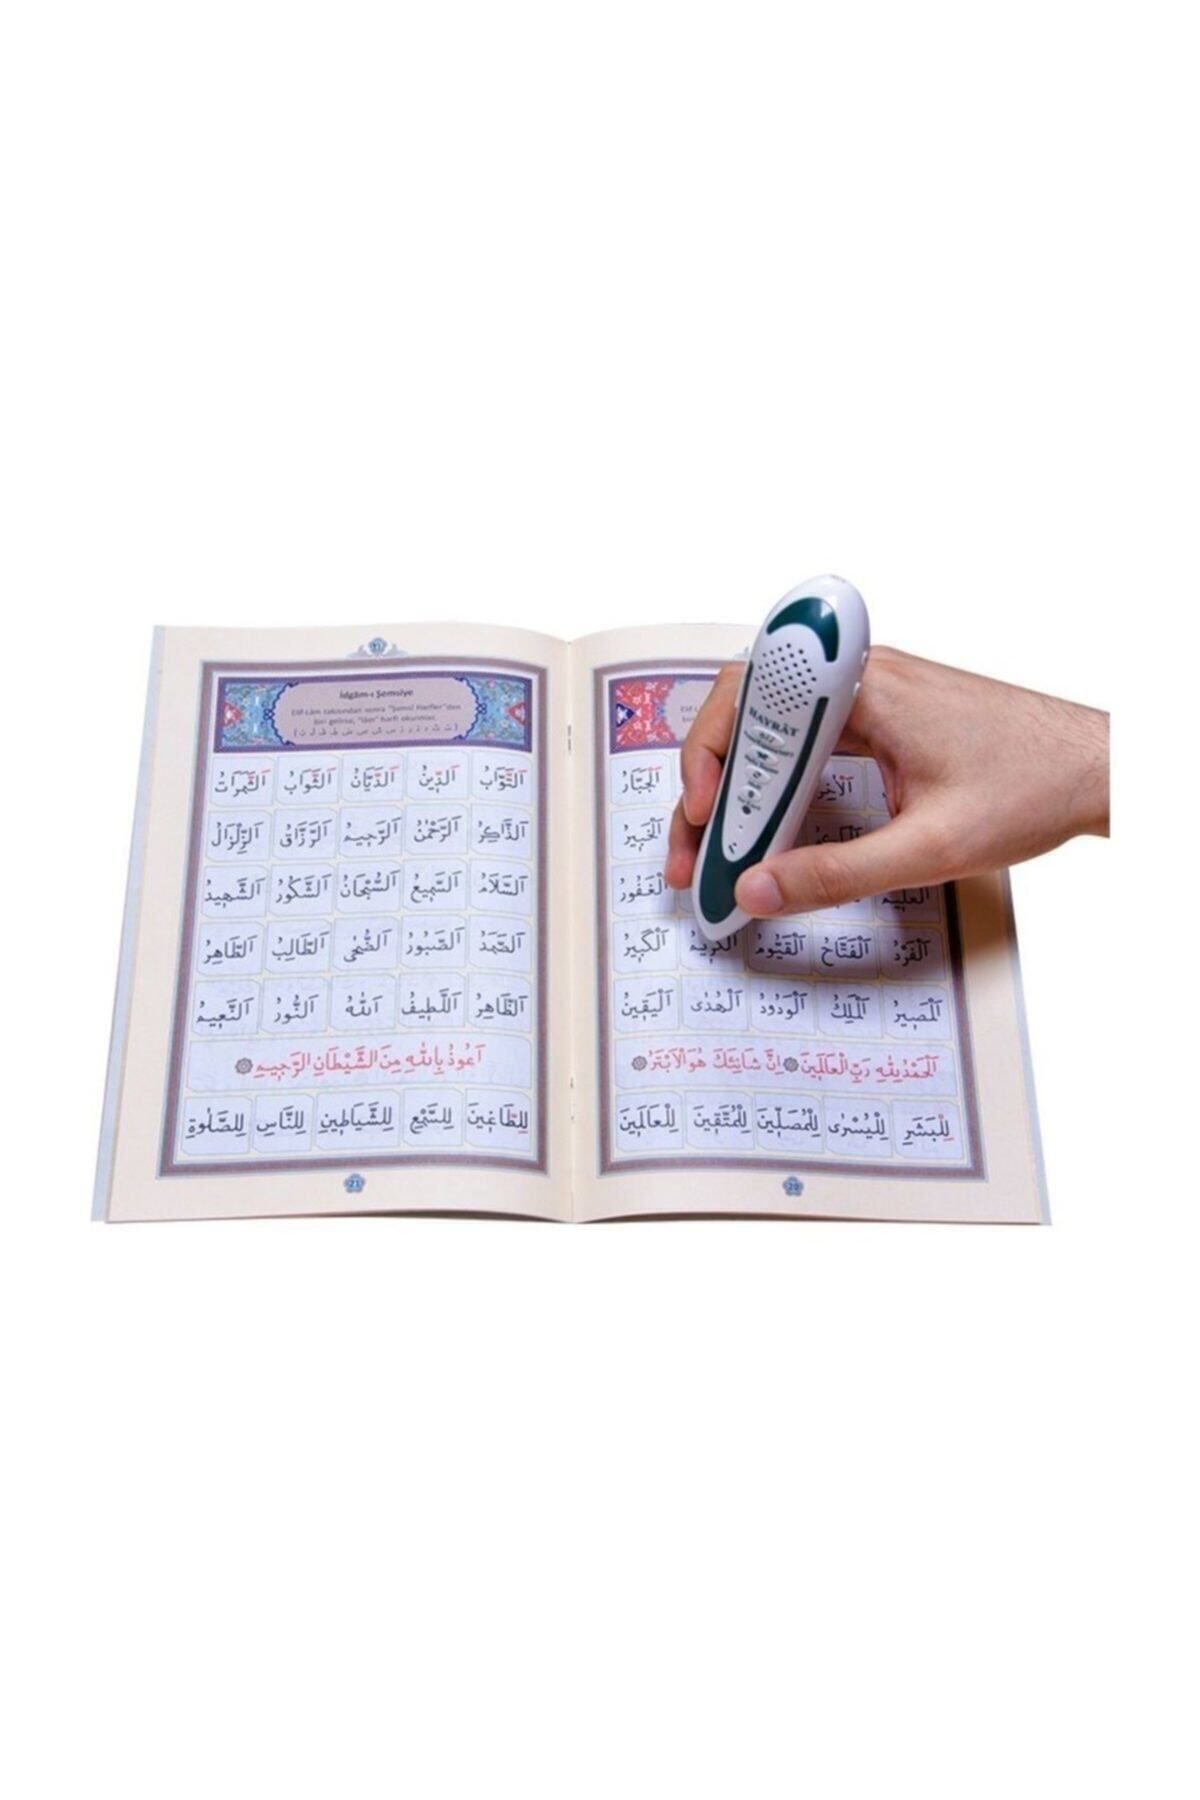 İdgâm-ı Şemsiye
Elif-Lâm takısından sonra "Şemsî Harfler"den
biri gelirse, "lâm" harfi okunmaz.
اَلتَّوَّابُ اَلدِّينُ اَلدَّيَّانُ اَلثَّوَابُ اَلثَّمَرَاتُ
اَلذَّاكِرُ اَلرَّحْمٰنُ اَلرَّحِيمُ اَلرَّزَّاقُ اَلزِّلْزَالُ
اَلسَّلَامُ اَلسَّمِيعُ اَلسُّبْحَانُ اَلشَّكُورُ اَلشَّهِيدُ
اَلصَّمَدُ اَلصَّبُورُ اَلضُّحٰى اَلطَّالِبُ اَلطَّاهِرُ
اَلظَّاهِرُ اَللَّطِيفُ اَللّٰهُ اَلنُّورُ اَلنَّعِيمُ
اَعُوذُ بِاللّٰهِ مِنَ الشَّيْطَانِ الرَّجِيمِ
لِلطَّاغِينَ لِلسَّمْعِ لِلشَّيَاطِينِ لِلنَّاسِ لِلصَّلٰوةِ
21
HAYRÂT
اَلْاٰخِرُ اَلْجَبَّارُ
اَلْخَبِيرُ
اَلْعَلِيمُ اَلْغَفُورُ
اَلْفَرْدُ اَلْفَتَّاحُ اَلْقَيُّومُ اَلْكَرِيمُ اَلْكَبِيرُ
اَلْمَصِيرُ اَلْمَلِكُ اَلْوَدُودُ اَلْهُدٰى اَلْيَقِينُ
اَلْحَمْدُ لِلّٰهِ رَبِّ الْعَالَمِينَ اِنَّ شَانِئَكَ هُوَ الْاَبْتَرُ
لِلْبَشَرِ لِلْيُسْرٰى لِلْمُصَلِّينَ لِلْمُتَّقِينَ لِلْعَالَمِينَ
20